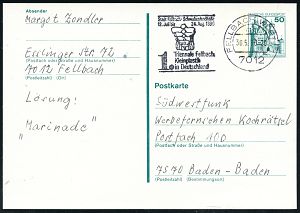 Absender
Margot Zondler
Esslinger Str. 72
(Straße und Hausnummer oder Postfach)
7012 Fellbach
(Postleitzahl) (Ort)
Lösung:
"Marinade"
1. Triennale Fellbach
Kleinplastik
in Deutschland
FELLBACH
7012
50
Postkarte
Südwestfunk
Werbefernsehen Kochrätsel
Postfach 100
(Postfach oder Straße und Hausnummer)
7570 Baden-Baden
(Postleitzahl) (Bestimmungsort)